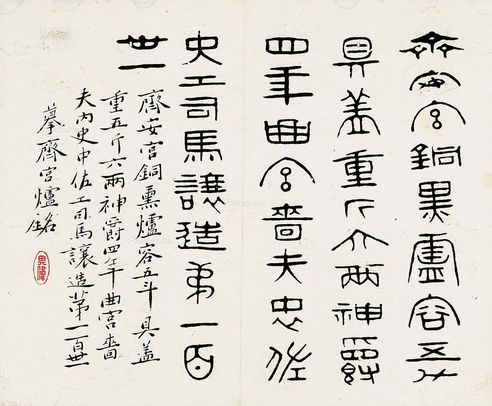 齊安宮銅熏盧容五斗
具蓋重斤六兩神爵
四年曲宮嗇夫忠佐
史工司馬讓造弟一百
卅一
齊安宮銅熏爐容五斗具蓋
重五斤六兩神爵四年曲宮嗇
夫內史中佐工司馬讓造第一百卅一
摹齊宮爐銘